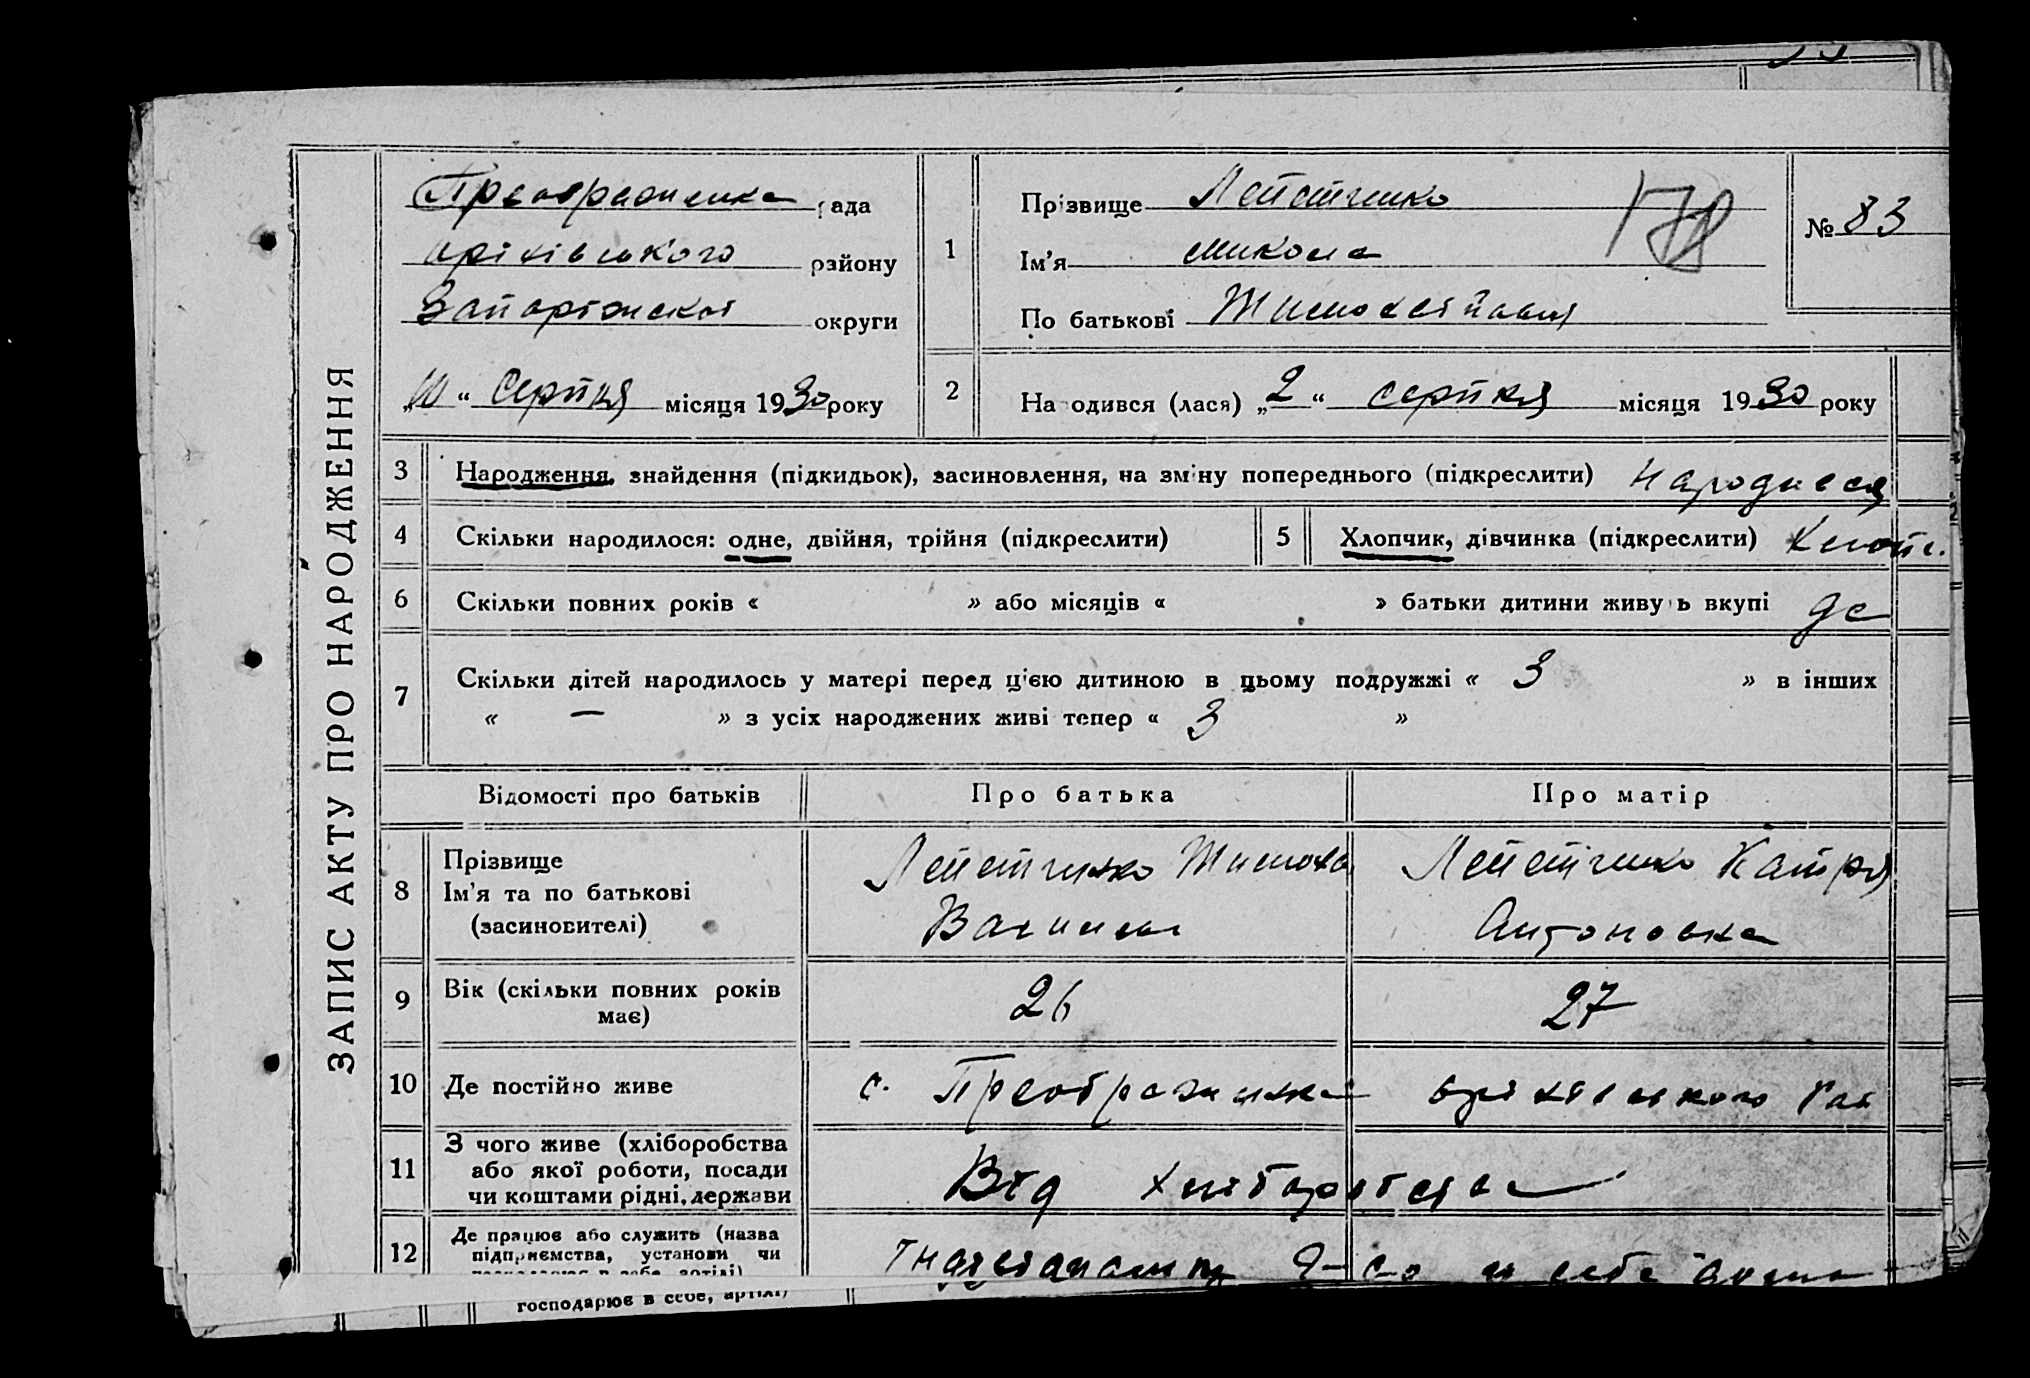 ЗАПИС АКТУ ПРО НАРОДЖЕННЯ
Преображенка рада
оріхівського району
Запоріжскої округи
„10“ Серпня місяця 1930 року
1
Прізвище Лепетченко
Ім'я микола
По батькові Тимохвійович
178
№ 83
2
Народився (лася) „2“ серпня місяця 1930 року
3 Народження, знайдення (підкидьок), засиновлення, на зміну попереднього (підкреслити) Народився
4 Скільки народилося: одне, двійня, трійня (підкреслити)
5 Хлопчик, дівчинка (підкреслити) Хлопч.
6 Скільки повних років « » або місяців « » батьки дитини живуть вкупі
7 Скільки дітей народилось у матері перед цією дитиною в цьому подружжі « 3 » в інших
« — » з усіх народжених живі тепер « 3 »
Відомості про батьків Про батька Про матір
8 Прізвище
Ім'я та по батькові
(засиновителі)
Лепетченко Тимохва
Васильов
Лепетченко Катря
Антоновна
9 Вік (скільки повних років
має)
26 27
10 Де постійно живе с. Преображенка оріхівського Рай
11 З чого живе (хліборобства
або якої роботи, посади
чи коштами рідні, держави
Від хліборобства
12 Де працює або служить (назва
підприємства, установи чи
господарює в себе, артілі)